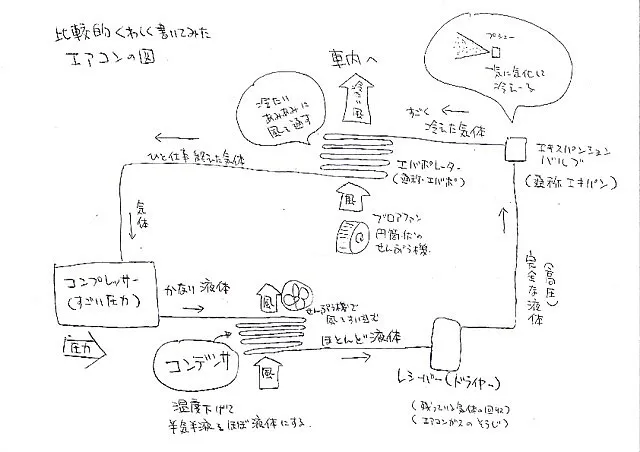 比較的くわしく書いてみた
エアコンの図
プシュー
一気に気化して
冷えーる
車内へ
冷たい風
冷たい
あみあみに
風を通す
すごく
冷えた気体
エキスパンション
バルブ
(通称エキパン)
ひと仕事終えた気体
エバポレーター
(通称エバポ)
風
ブロアファン
円筒状の
せんぷう機
気体
コンプレッサー
(すごい圧力)
かなり液体
風
せんぷう機で
風をすい込む
(高圧)
完全な液体
圧力
コンデンサ
風
ほとんど液体
レシーバー(ドライヤー)
(残っている気体の回収)
(エアコンガスのそうじ)
温度下げて
半気半液をほぼ液体にする